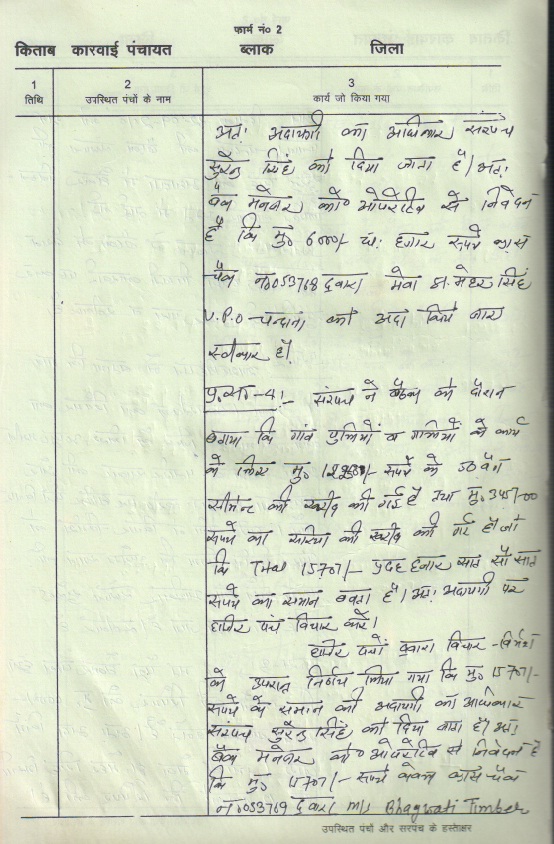 फार्म नं० 2
किताब कारवाई पंचायत ब्लाक जिला
1 2 3
तिथि उपस्थित पंचों के नाम कार्य जो किया गया
अतः अदायगी का अधिकार सरपंच
सुरेन्द्र सिंह को दिया जाता है। अतः
बैंक मैनेजर को०ओपरेटिव से निवेदन
है कि मु० 6000/- छः हजार रुपये क्रास
चैक न०053768 द्वारा मेवा s/o मेहर सिंह
V.P.O चन्दाना को अदा किये जाए
स्वीकार है।
प्र०स०-4:- सरपंच ने बैठक के दौरान
बताया कि गांव पुलियों व गलियों के कार्य
के लिए मु० रुपये के 50 बैग
सीमेन्ट की खरीद की गई है तथा मु० 3457-00
रुपये का सरिया की खरीद की गई है जो
कि Total 15707/- पन्द्रह हजार सात सौ सात
रुपये का समान बनता है। अतः अदायगी पर
हाजिर पंच विचार करें।
हाजिर पंचों द्वारा विचार-विमर्श
के उपरान्त निर्णय लिया गया कि मु० 15707/-
रुपये के समान की अदायगी का अधिकार
सरपंच सुरेन्द्र सिंह को दिया जाता है। अतः
बैंक मैनेजर को०ओपरेटिव से निवेदन है
कि मु० 15707/- रुपये केवल क्रास चैक
न०053769 द्वारा M/s Bhagwati Timber
उपस्थित पंचों और सरपंच के हस्ताक्षर